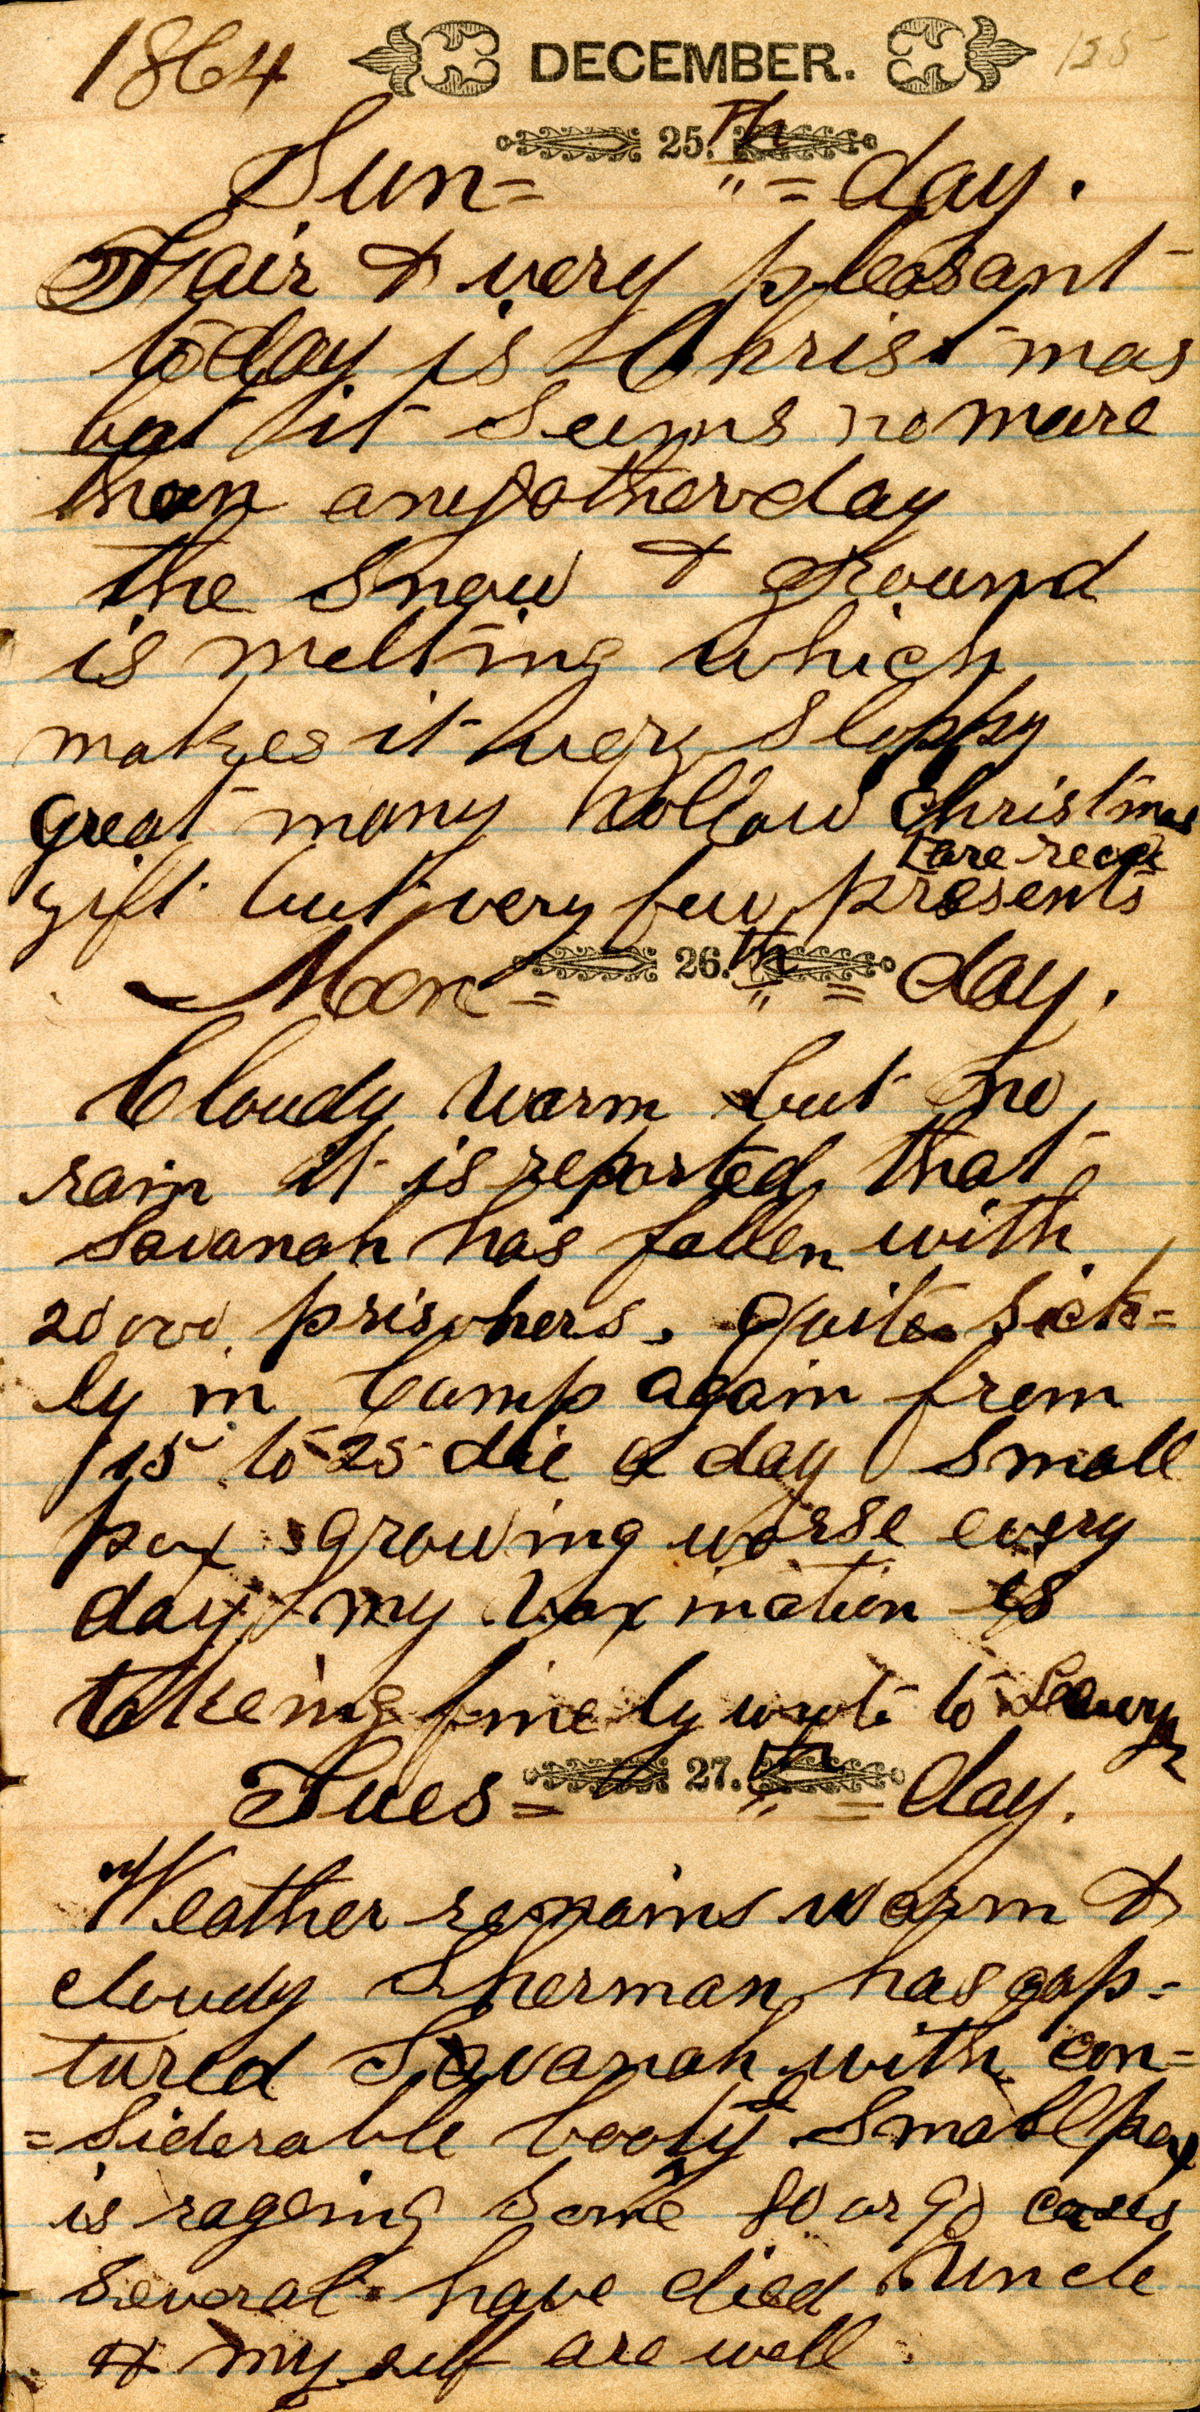 1864 DECEMBER. 125
Sun= 25.th "= day.
Fair & very pleasant
to day is Christmas
but it Seems no more
than any other day
the Snow & ground
is melting which
makes it very Sloppy
great many hollow Christmas
gift but very few presents
are recd
Mon= 26.th "= day.
Cloudy warm but no
rain it is reported that
Savanah has fallen with
20000 prisoners. Quite Sick=
ly in Camp again from
15 to 25 die a day Small
pox growing worse every
day my Vaxination is
takeing finely wrote to
Tues= 27.th "= day.
Weather remains warm &
cloudy Sherman has cap=
tured Savanah with con=
=Siderable booty Small pox
is rageing Some 80 or 90 cases
Several have died Uncle
& my self are well.